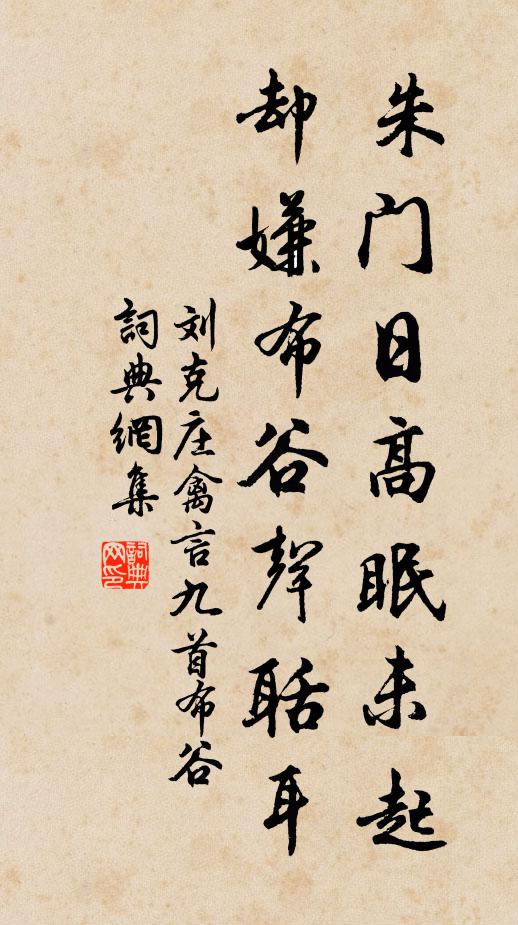 朱门日高眠未起
却嫌布谷聲聒耳
刘克庄禽言九首布谷
詞典網集
詞典网印